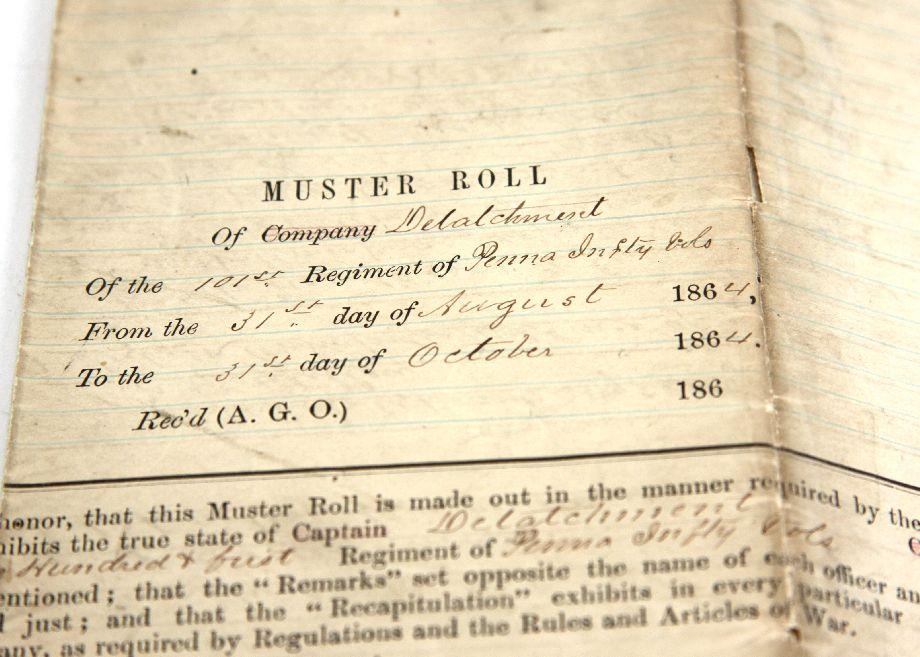 MUSTER ROLL
Of Company Detatchment
Of the 101st Regiment of Penna Infty Vols
From the 31st day of August 1864,
To the 31st day of October 1864.
Rec'd (A. G. O.) 186
honor, that this Muster Roll is made out in the manner required by the
hibits the true state of Captain Detatchment
Hundred & first Regiment of Penna Infty Vols
entioned; that the "Remarks" set opposite the name of each officer an
d just; and that the "Recapitulation" exhibits in every particular
any, as required by Regulations and the Rules and Articles of War.